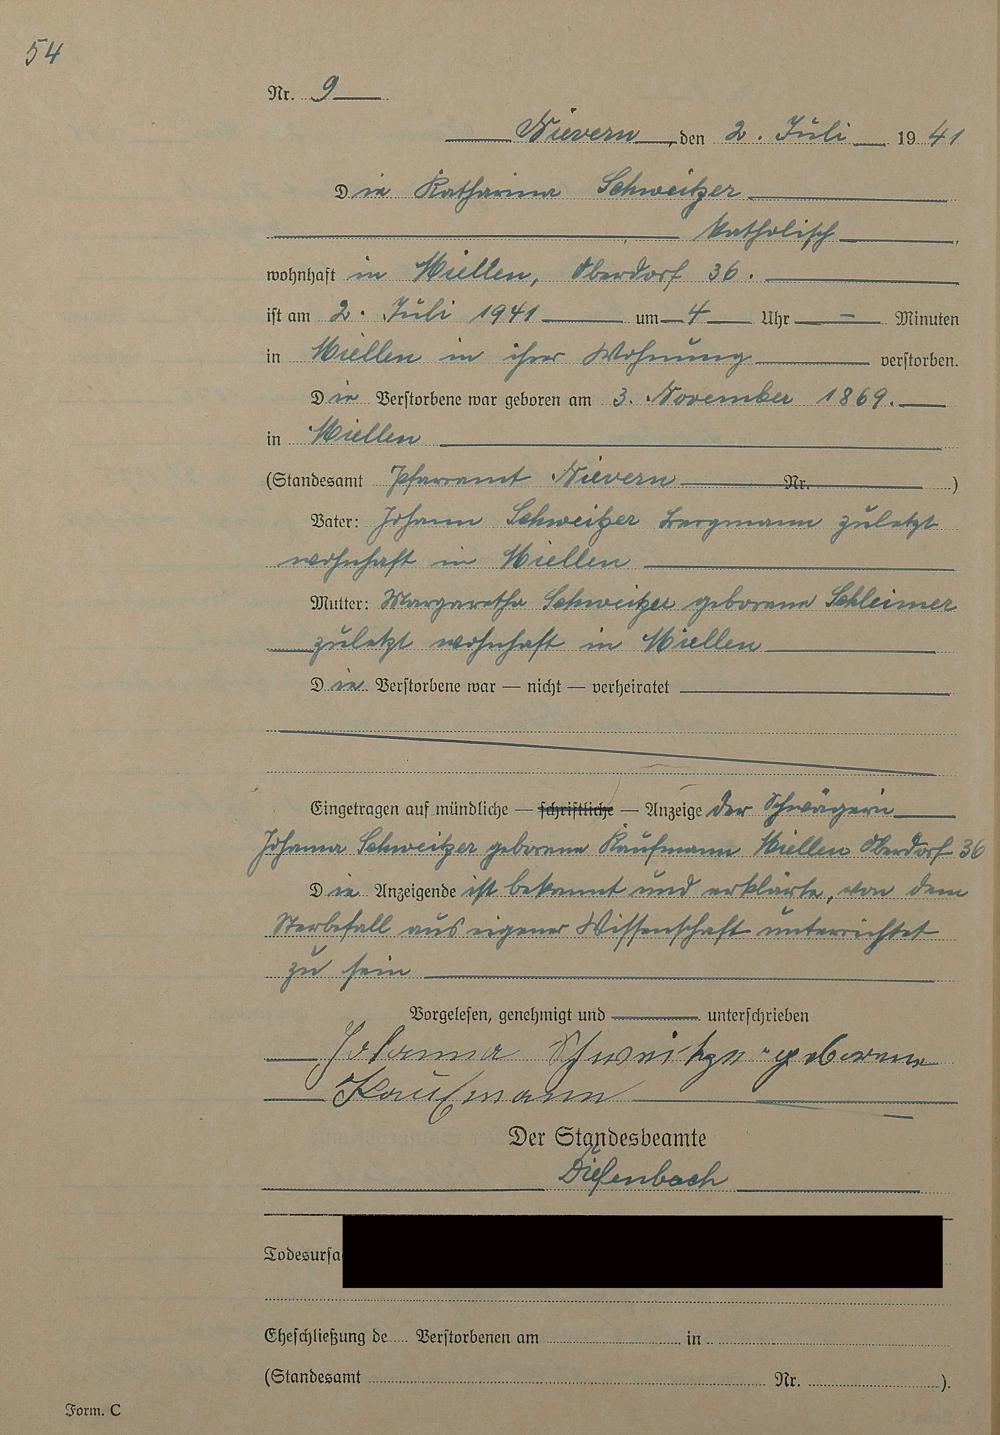 54
Nr. 9
Nievern, den 2. Juli 1941
Die Katharina Schweitzer
katholisch
wohnhaft in Miellen, Oberdorf 36.
ist am 2. Juli 1941 um 4 Uhr — Minuten
in Miellen in ihrer Wohnung verstorben.
Die Verstorbene war geboren am 3. November 1869.
in Miellen
(Standesamt Pfarramt Nievern Nr. )
Vater: Johann Schweitzer Bergmann zuletzt
wohnhaft in Miellen
Mutter: Margaretha Schweitzer geborene Schleimer
zuletzt wohnhaft in Miellen
Die Verstorbene war — nicht — verheiratet
Eingetragen auf mündliche — schriftliche — Anzeige der Schwägerin
Johanna Schweitzer geborene Kaufmann Miellen Oberdorf 36
Die Anzeigende ist bekannt und erklärte, von dem
Sterbefall aus eigener Wissenschaft unterrichtet
zu sein
Vorgelesen, genehmigt und unterschrieben
Johanna Schweitzer geborene
Kaufmann
Der Standesbeamte
Diefenbach
Todesursa
Eheschließung de Verstorbenen am in
(Standesamt Nr. ).
Form. C